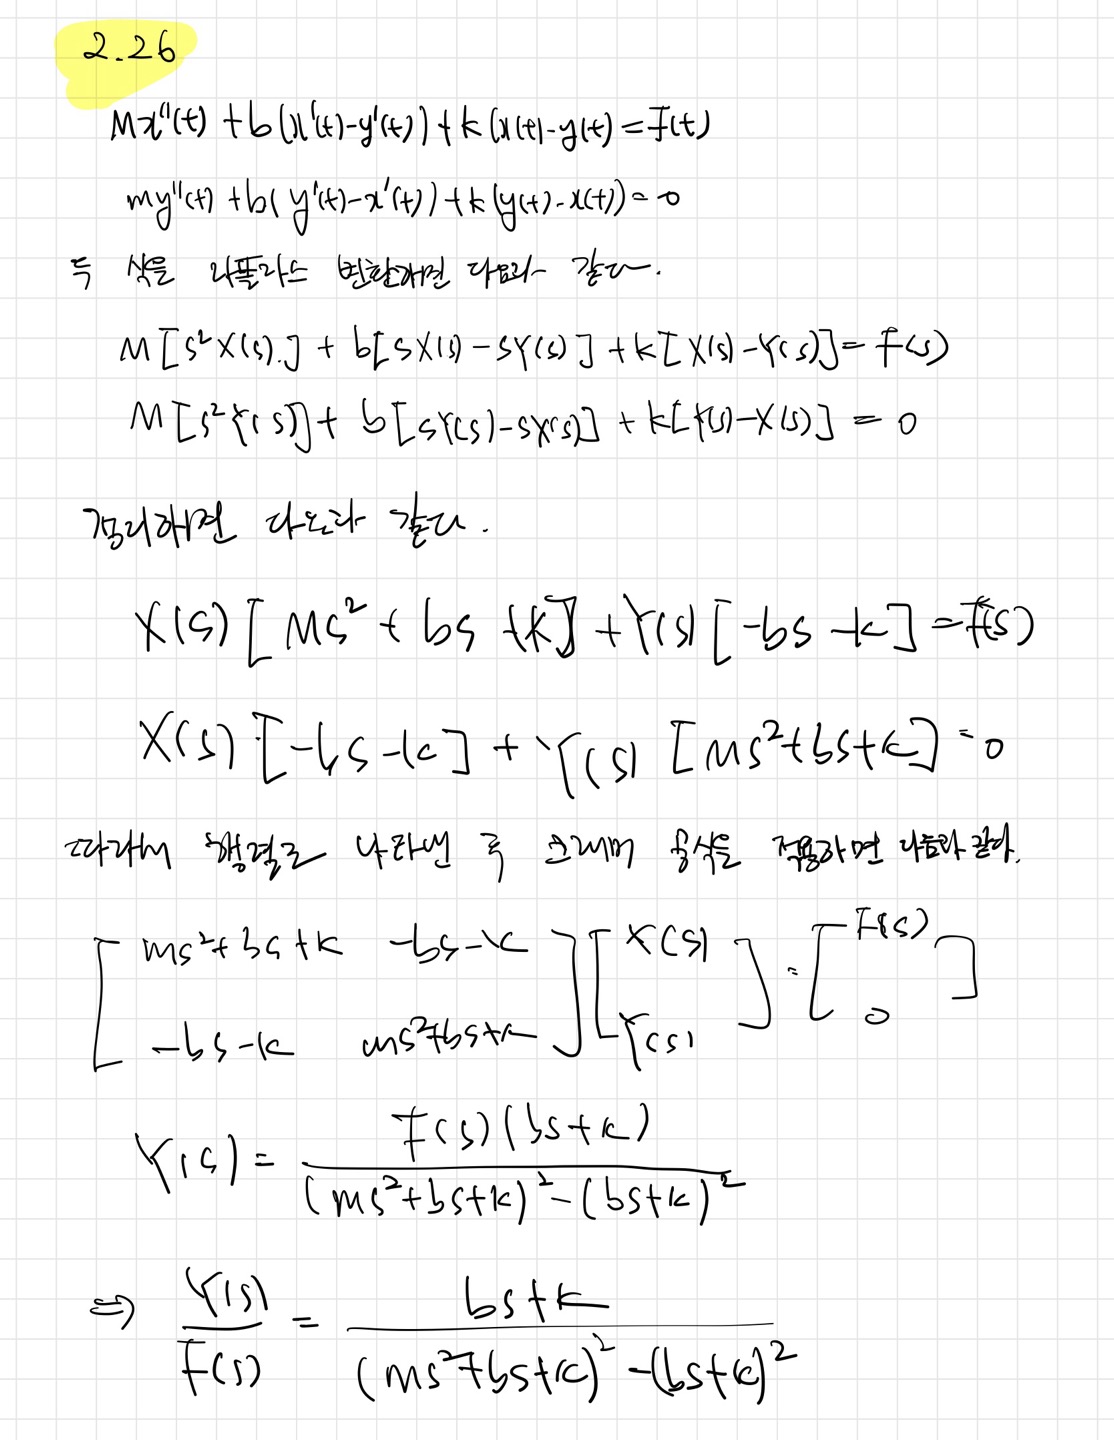 2.26
Mx''(t) + b(x'(t)-y'(t)) + k(x(t)-y(t) = F(t)
my''(t) + b(y'(t)-x'(t)) + k(y(t)-x(t)) = 0
두 식을 라플라스 변환하면 다음과 같다.
M[s²X(s).] + b[sX(s) - sY(s)] + k[X(s) - Y(s)] = F(s)
M[s²Y(s)] + b[sY(s) - sX(s)] + k[Y(s) - X(s)] = 0
정리하면 다음과 같다.
X(s)[Ms² + bs + k] + Y(s)[-bs - k] = F(s)
X(s)[-bs - k] + Y(s)[ms² + bs + k] = 0
따라서 행렬로 나타낸 후 크래머 공식을 적용하면 다음과 같다.
[ms² + bs + k -bs - k] [X(s)] = [F(s)]
[-bs - k ms² + bs + k] [Y(s)] [0]
Y(s) = F(s)(bs + k) / (ms² + bs + k)² - (bs + k)²
⇒ Y(s)/F(s) = bs + k / (ms² + bs + k)² - (bs + k)²